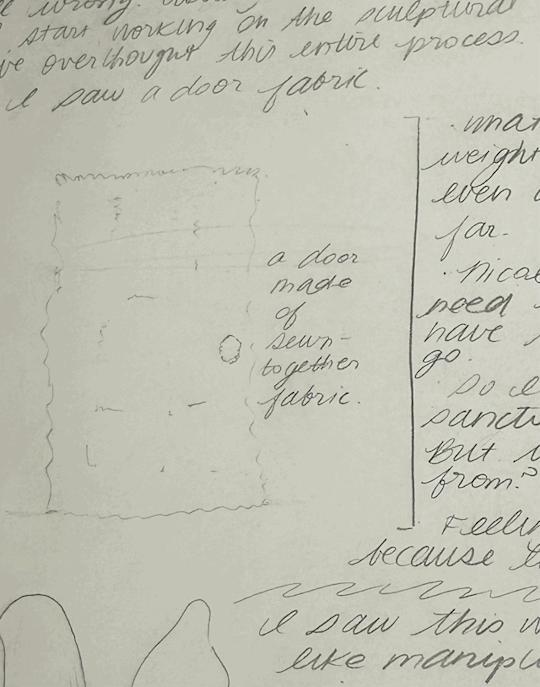 wrong.
start working on the sculptural
ve overthought this entire process.
I saw a door fabric.
a door
made
of
sewn-
together
fabric.
what
weight
even
far.
need
have
go.
So I
sanctu
But
from?
Feelin
because
I saw this
like manipu